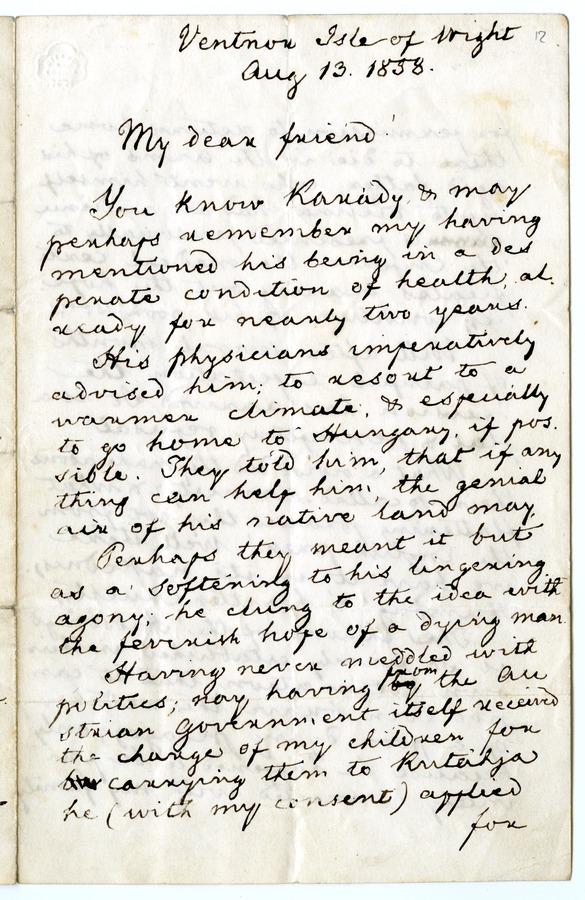 12
Ventnor Isle of Wight
Aug 13. 1858.
My dear friend!
You know Karády, & may
perhaps remember my having
mentioned his being in a des
perate condition of health, al.
ready for nearly two years.
His physicians imperatively
advised him; to resort to a
warmer climate, & especially
to go home to Hungary, if pos.
sible. They told him, that if any
thing can help him, the genial
air of his native land may.
Perhaps they meant it but
as a softening to his lingering
agony; he clung to the idea with
the feverish hope of a dying man.
Having never meddled with
politics; nay having from the Au
strian Government itself received
the charge of my children for
carrying them to Kutahja
he (with my consent) applied
for